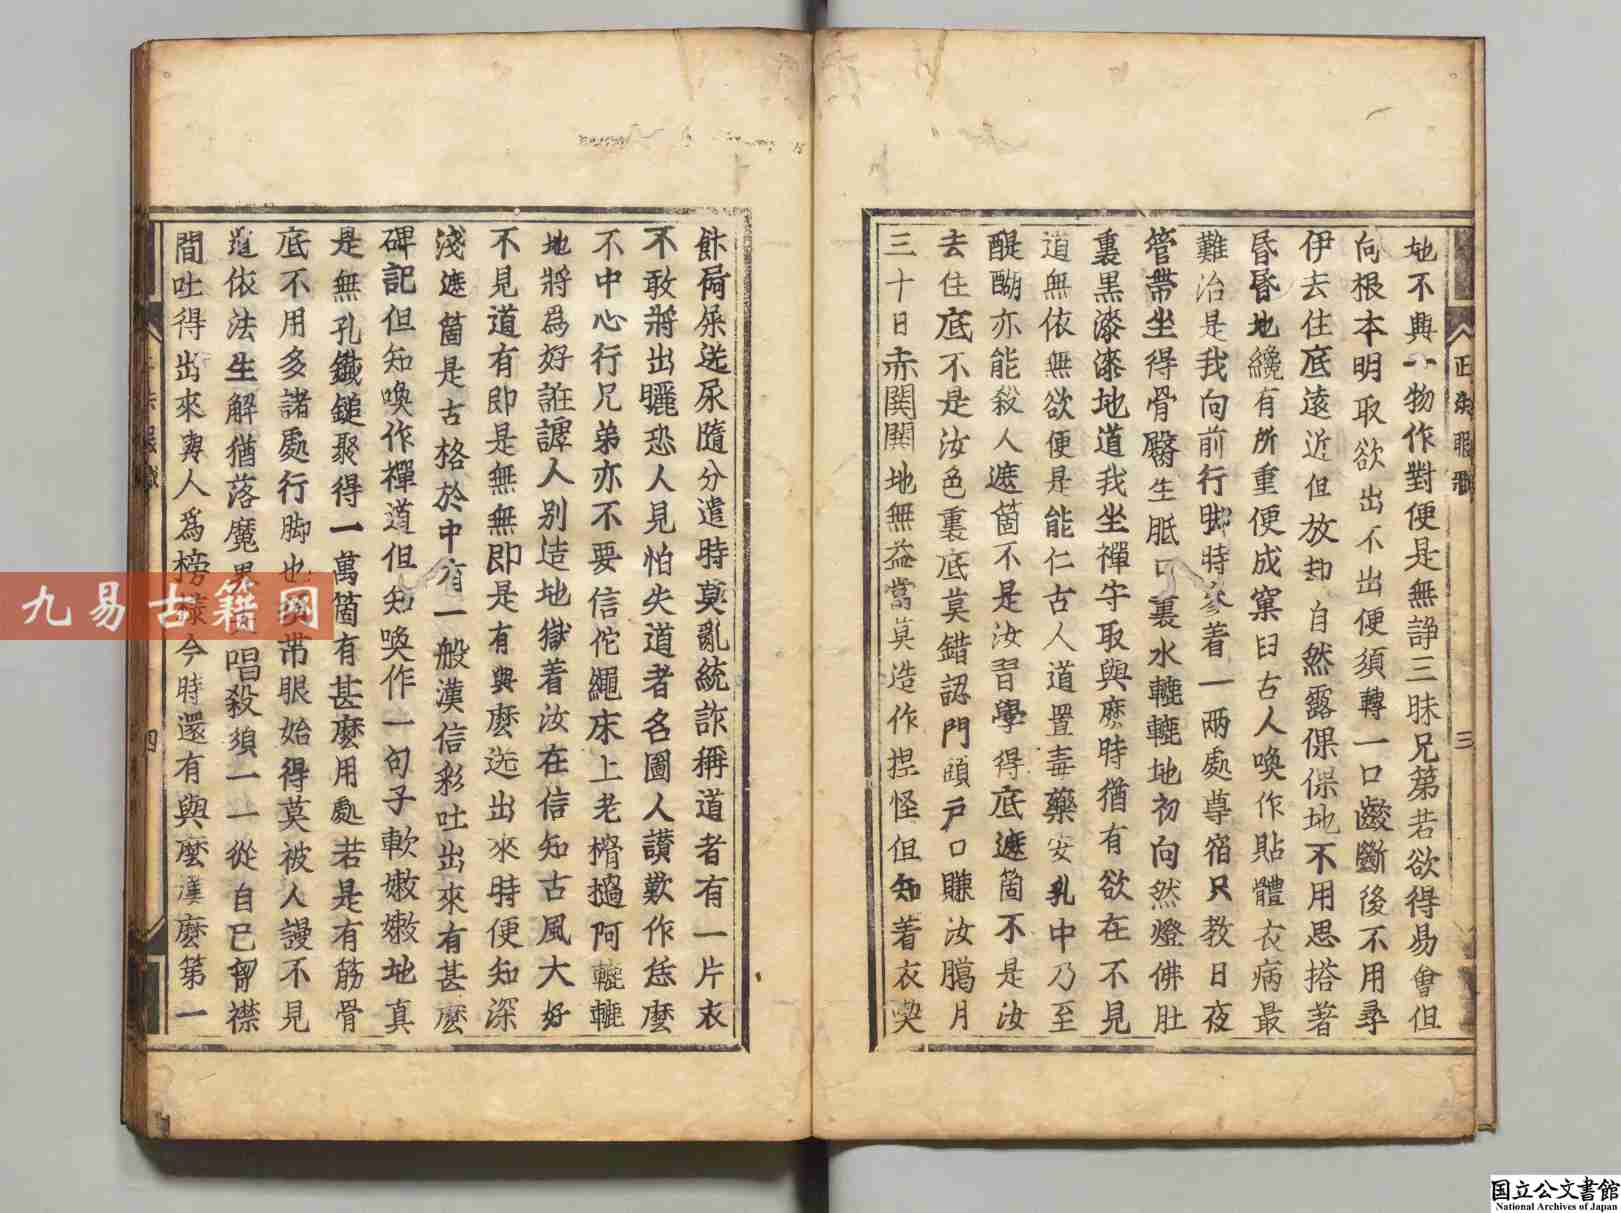 地不與一物作對便是無諍三昧兄弟若欲得易會但
向根本明取欲出不出便須轉一口齩斷後不用尋
伊去住底遠近但放却自然露倮倮地不用思搭著
昏昏地纔有所重便成窠臼古人喚作貼體衣病最
難治是我向前行脚時參着一兩處尊宿只教日夜
管帶坐得骨臀生胝口裏水漉漉地初向然燈佛肚
裏黑漆漆地道我坐禪守取與麽時猶有欲在不見
道無依無欲便是能仁古人道置毒藥安乳中乃至
醍醐亦能殺人遮箇不是汝習學得底遮箇不是汝
去住底不是汝色裏底莫錯認門頭戸口賺汝臈月
三十日赤閧閧地無益當莫造作捏怪但知着衣喫
正法眼藏
三
飰屙屎送尿隨分遣時莫亂統詐稱道者有一片衣
不敢將出曬恐人見怕失道者名圖人讃歎作恁麽
不中心行兄弟亦不要信佗繩床上老榾檛阿轆轆
地將爲好誑謼人別造地獄着汝在信知古風大好
不見道有即是無無即是有與麽迯出來時便知深
淺遮箇是古格於中有一般漢信彩吐出來有甚麽
碑記但知喚作禪道但知喚作一句子軟嫩嫩地真
是無孔鐵鎚聚得一萬箇有甚麽用處若是有筋骨
底不用多諸處行脚也須帶眼始得莫被人謾不見
道依法生解猶落魔界夫唱教須一一從自己胷襟
間吐得出來與人爲榜樣今時還有與麽漢麽第一
四
九易古籍网
国立公文書館
National Archives of Japan